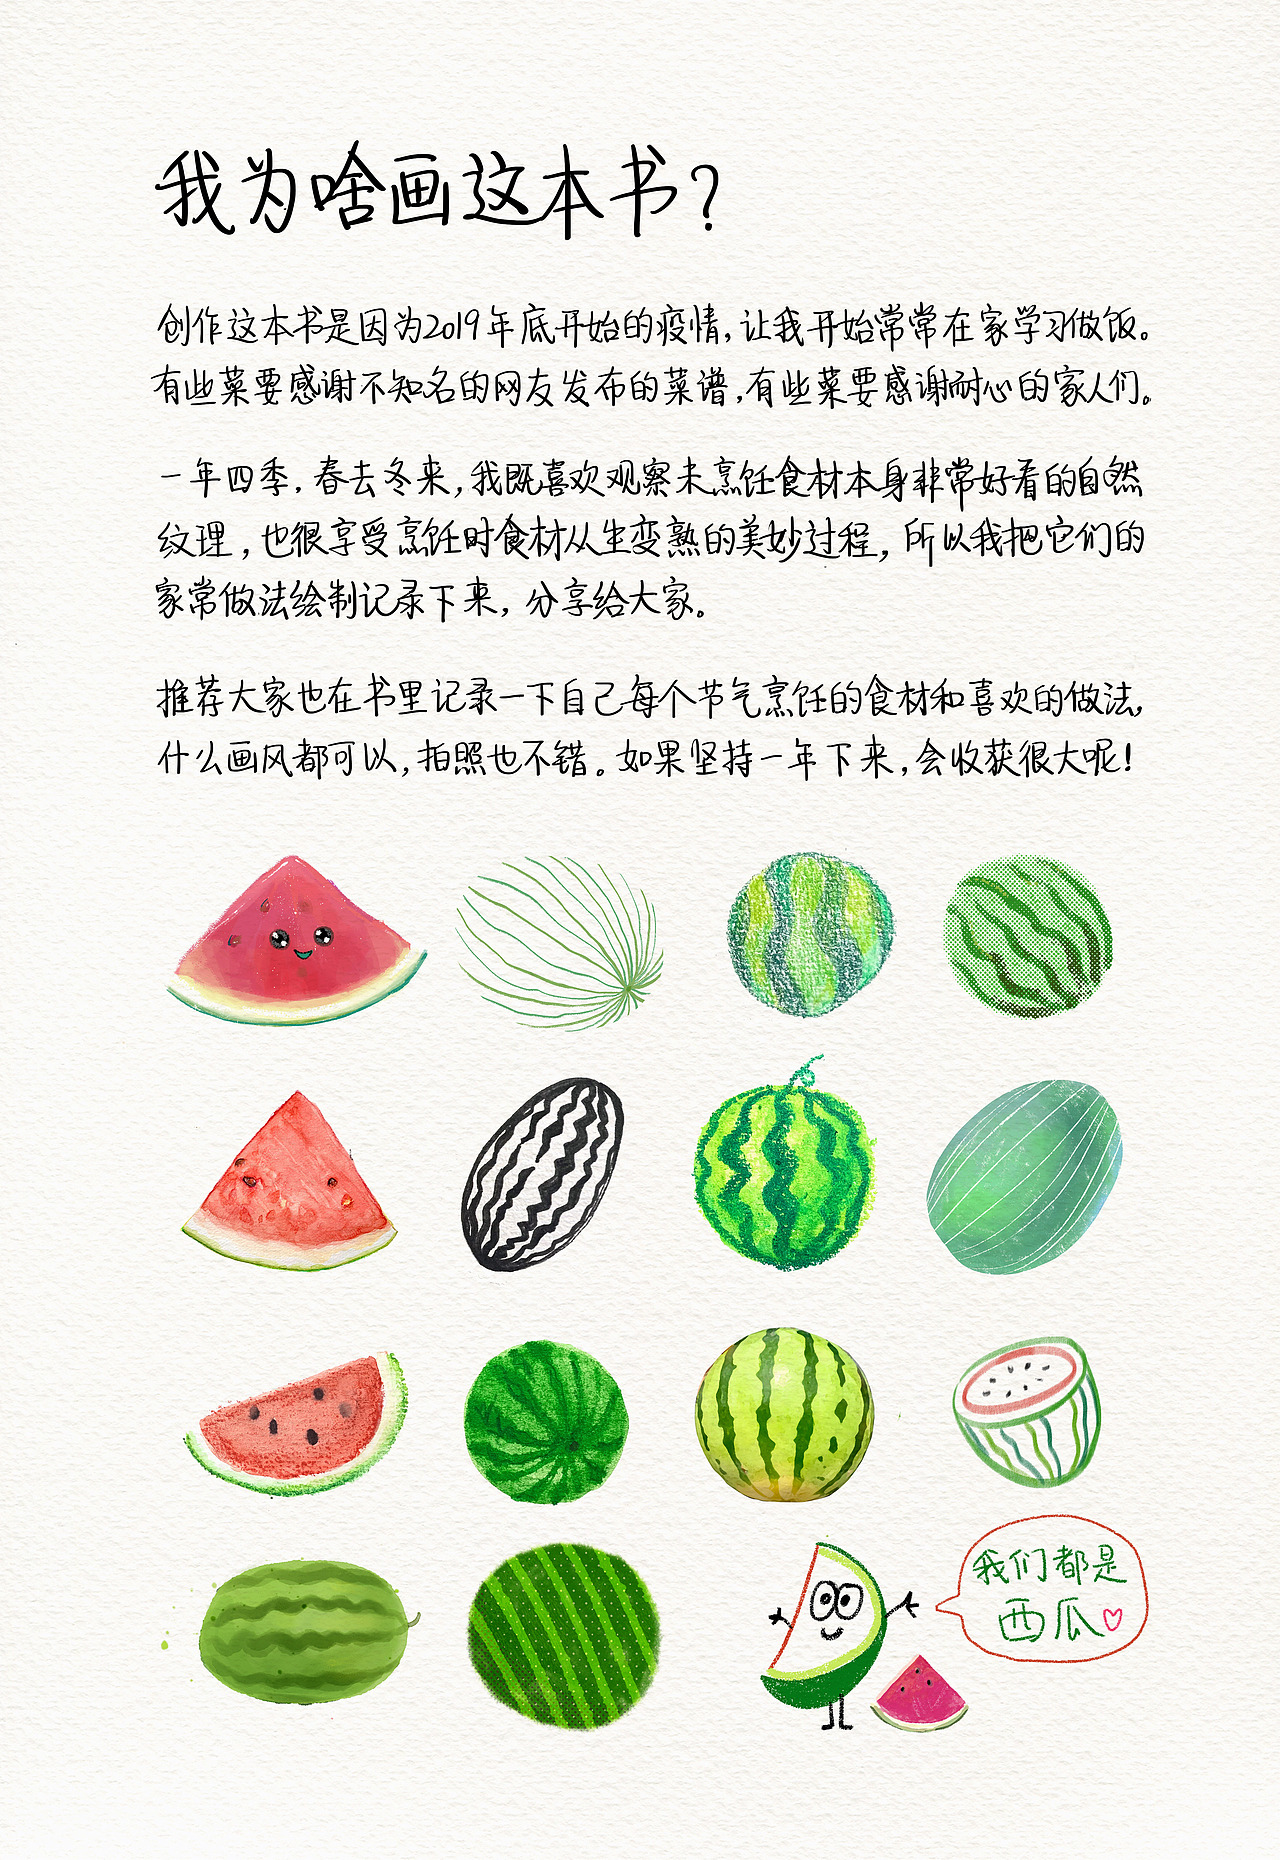 我为啥画这本书?
创作这本书是因为2019年底开始的疫情,让我开始常常在家学习做饭。
有些菜要感谢不知名的网友发布的菜谱,有些菜要感谢耐心的家人们。
一年四季,春去冬来,我既喜欢观察未烹饪食材本身非常好看的自然
纹理,也很享受烹饪时食材从生变熟的美妙过程,所以我把它们的
家常做法绘制记录下来,分享给大家。
推荐大家也在书里记录一下自己每个节气烹饪的食材和喜欢的做法,
什么画风都可以,拍照也不错。如果坚持一年下来,会收获很大呢!
我们都是
西瓜♡